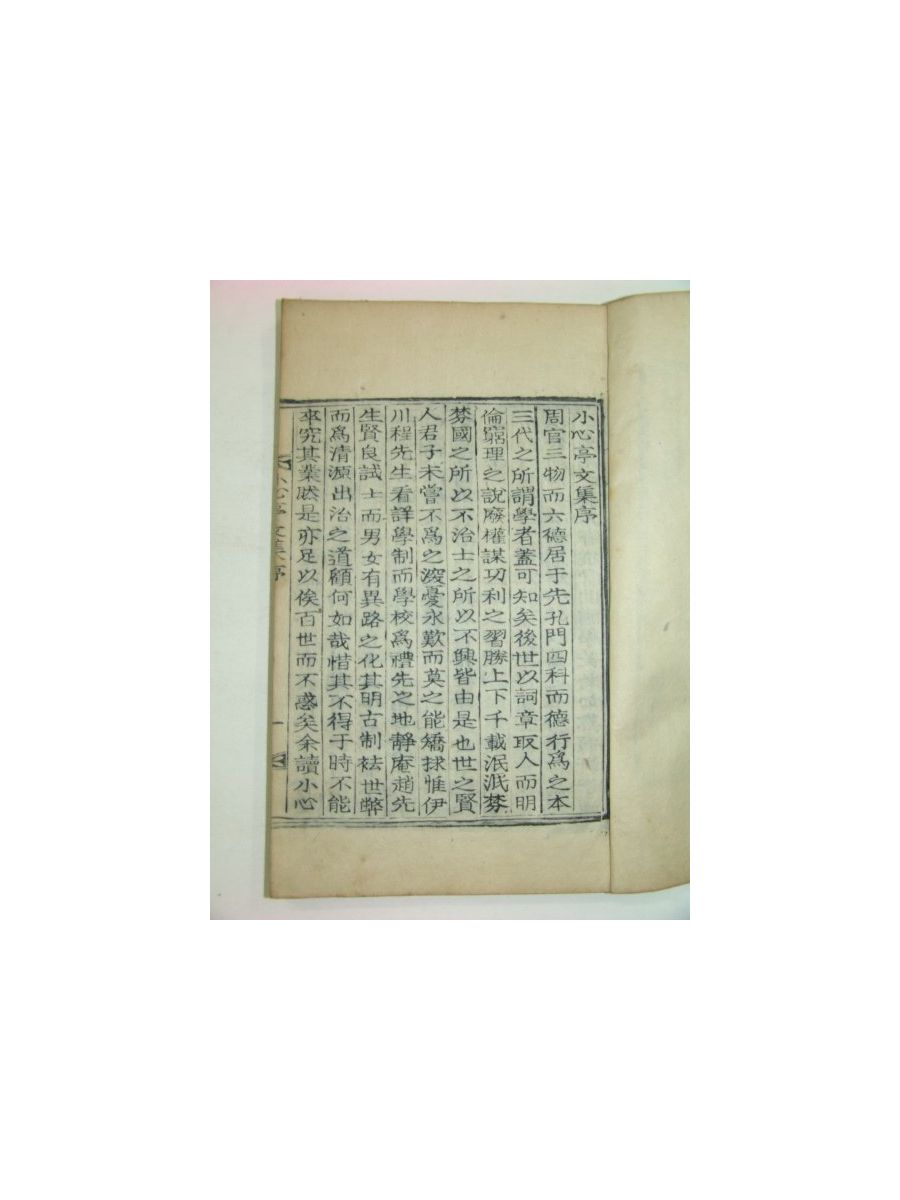 小心亭文集序
周官三物而六德居于先孔門四科而德行爲之本
三代之所謂學者蓋可知矣後世以詞章取人而明
倫窮理之說廢權謀功利之習勝上下千載泯泯棼
棼國之所以不治士之所以不興皆由是也世之賢
人君子未嘗不爲之深憂永歎而莫之能矯捄惟伊
川程先生看詳學制而學校爲禮先之地靜庵趙先
生賢良試士而男女有異路之化其明古制袪世弊
而爲清源出治之道顧何如哉惜其不得于時不能
卒究其業然是亦足以俟百世而不惑矣余讀小心
小心亭文集序
一